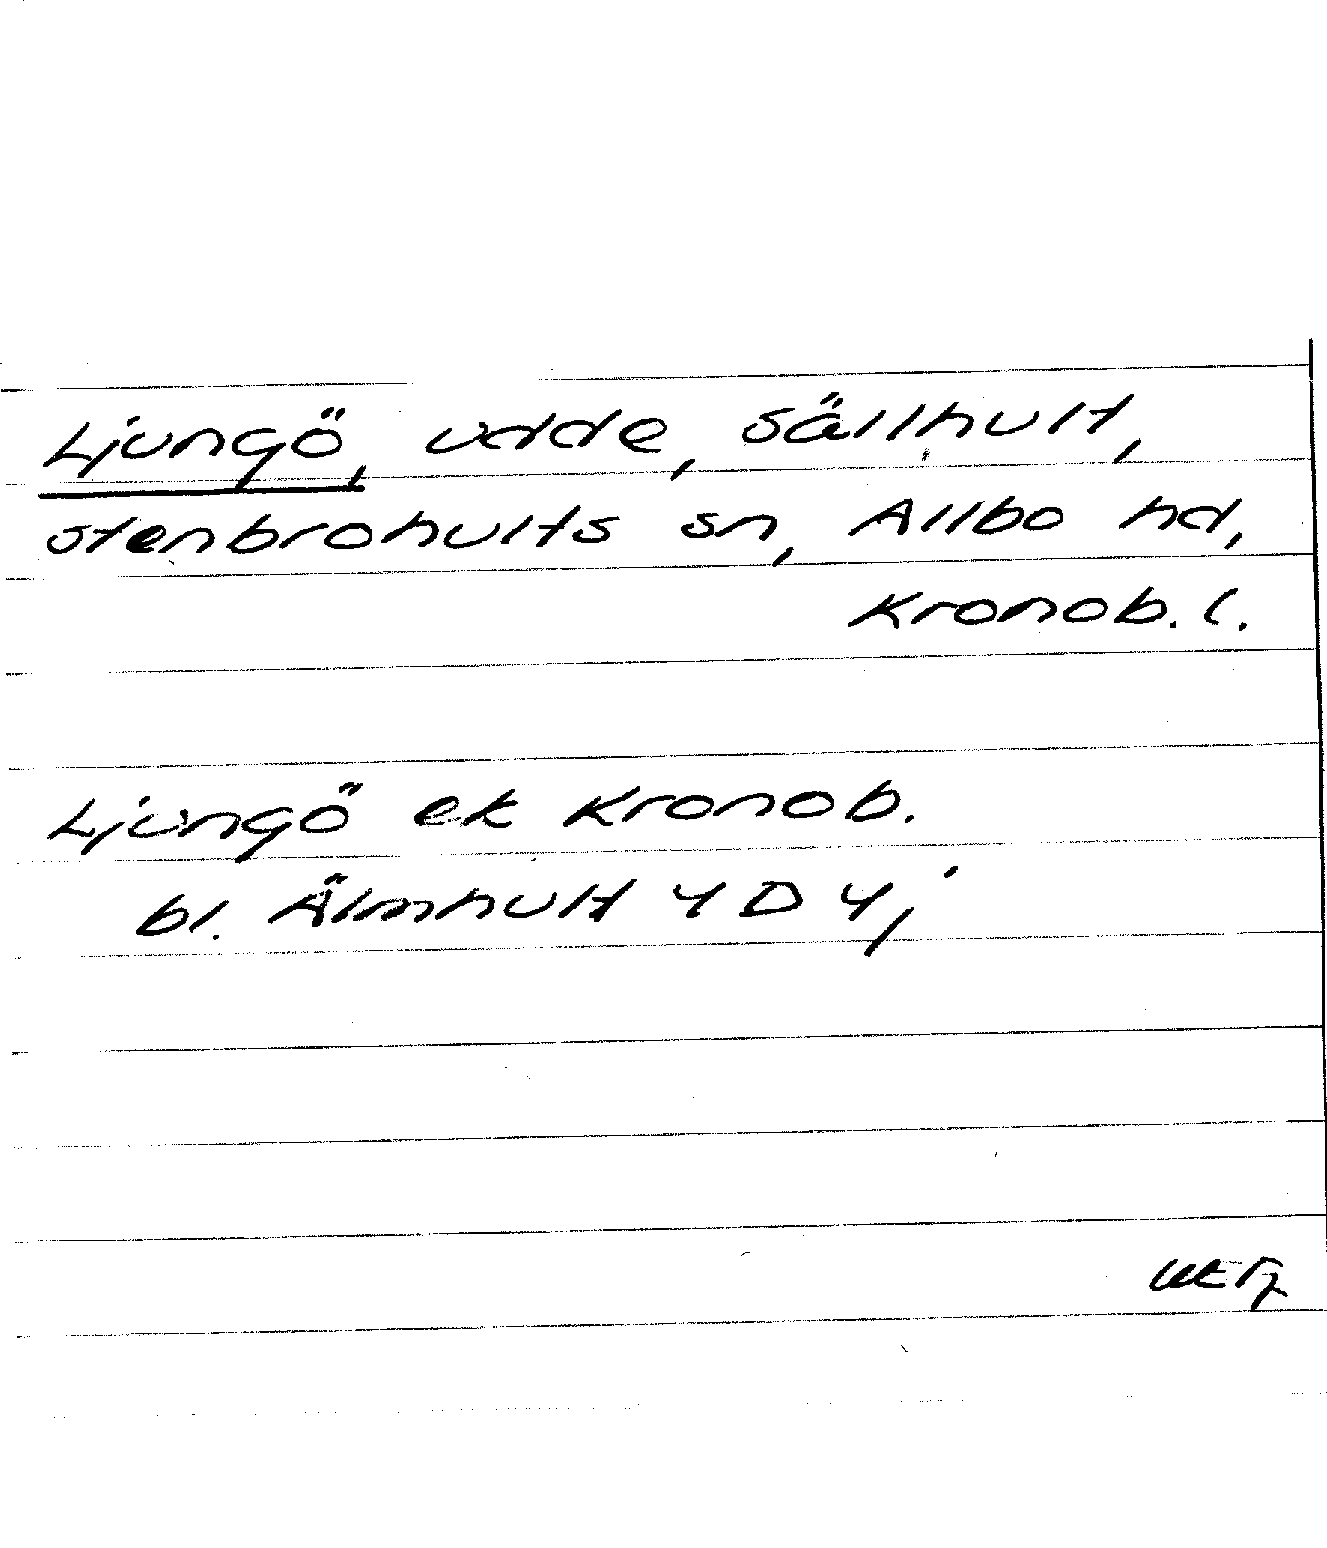 Ljungö, udde, Sällhult,
Stenbrohults sn, Allbo hd,
Kronob. l.
Ljungö ek Kronob.
bl. Älmhult 4 D 4 j